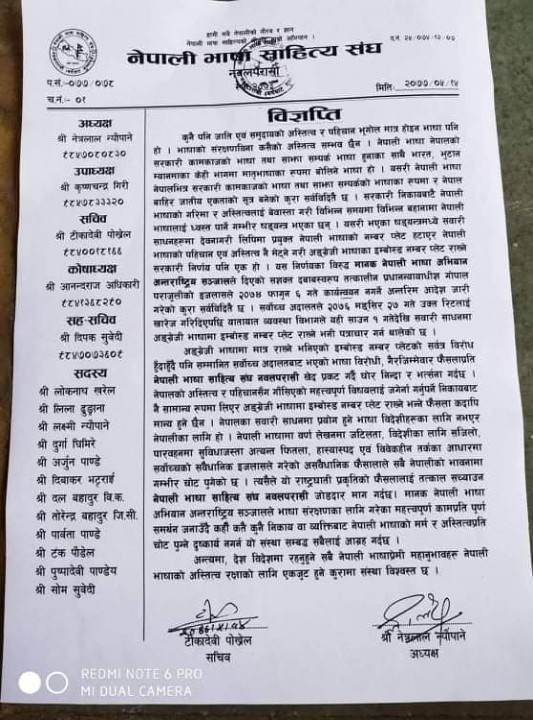 हामी सबै नेपालीको गौरव र शान
नेपाली भाषा साहित्यको
नेपाली भाषा साहित्य संघ
नवलपरासी
प.सं.-०७७/०७८
च.नं.- ०१
मिति:- २०७७/०४/१४
विज्ञप्ति
अध्यक्ष
श्री नेत्रलाल न्यौपाने
९८४७०८०८३०
उपाध्यक्ष
श्री कृष्णचन्द्र गिरी
९८४७८३३३२०
सचिव
श्री टीकादेवी पोखेल
कोषाध्यक्ष
श्री आनन्दराज अधिकारी
सह-सचिव
श्री दिपक सुवेदी
९८४७०७३६०९
सदस्य
श्री लोकनाथ खरेल
श्री लिला ढुङ्गाना
श्री लक्ष्मी न्यौपाने
श्री दुर्गा घिमिरे
श्री अर्जुन पाण्डे
श्री दिवाकर भट्टराई
श्री दल बहादुर वि.क.
श्री तोरेन्द्र बहादुर जि.सी.
श्री पार्वता पाण्डे
श्री टंक पौडेल
श्री पुष्पादेवी पाण्डेय
श्री सोम सुवेदी
कुनै पनि जाति एवं समुदायको अस्तित्व र पहिचान भूगोल मात्र होइन भाषा पनि
हो । भाषाको संरक्षणविना कसैको अस्तित्व सम्भव छैन । नेपाली भाषा नेपालको
सरकारी कामकाजको भाषा तथा साझा सम्पर्क भाषा हुनाका साथै भारत, भुटान
म्यानमाका केही भागमा मातृभाषाका रूपमा बोलिने भाषा हो । यसरी नेपाली भाषा
नेपालभित्र सरकारी कामकाजको भाषा तथा साझा सम्पर्कको भाषाका रूपमा र नेपाल
बाहिर जातीय एकताको सूत्र बनेको कुरा सर्वविदितै छ । सरकारी निकायबाटै नेपाली
भाषाको गरिमा र अस्तित्वलाई बेवास्ता गरी विभिन्न समयमा विभिन्न बहानामा नेपाली
भाषालाई ध्वस्त पार्ने गम्भीर षड्यन्त्र भएका छन् । यसरी भएका षड्यन्त्रमध्ये सवारी
साधनहरूमा देवनागरी लिपिमा प्रयुक्त नेपाली भाषाको नम्बर प्लेट हटाएर नेपाली
भाषाको पहिचान एवं अस्तित्व नै मेट्ने गरी अङ्ग्रेजी भाषाका इम्बोस्ड नम्बर प्लेट राख्ने
सरकारी निर्णय पनि एक हो । यस निर्णयका विरुद्ध मानक नेपाली भाषा अभियान
अन्तराष्ट्रिय सञ्जालले दिएको सशक्त दबाबस्वरूप तत्कालीन प्रधानन्यायाधीश गोपाल
पराजुलीको इजलासले २०७४ फागुन ६ गते कार्यान्वयन नगर्न अन्तरिम आदेश जारी
गरेको कुरा सर्वविदितै छ । सर्वोच्च अदालतले २०७६ मङ्सिर २७ गते उक्त रिटलाई
खारेज गरिदिएपछि यातायात व्यवस्था विभागले यही साउन १ गतेदेखि सवारी साधनमा
अङ्ग्रेजी भाषामा इम्बोस्ड नम्बर प्लेट राख्ने भनी पत्राचार गर्न थालेको छ ।
अङ्ग्रेजी भाषामा मात्र राख्ने भनिएको इम्बोस्ड नम्बर प्लेटको सर्वत्र विरोध
हुँदाहुँदै पनि सम्मानित सर्वोच्च अदालतबाट भएको भाषा विरोधी, गैरजिम्मेवार फैसलाप्रति
नेपाली भाषा साहित्य संघ नवलपरासी खेद प्रकट गर्दै घोर निन्दा र भर्त्सना गर्दछ ।
नेपालको अस्तित्व र पहिचानसँग गाँसिएको महत्त्वपूर्ण विषयलाई जगेर्ना गर्नुपर्ने निकायबाट
नै सामान्य रूपमा लिएर अङ्ग्रेजी भाषामा इम्बोस्ड नम्बर प्लेट राख्ने भन्ने फैसला कदापि
मान्य हुने छैन । नेपालका सवारी साधनमा प्रयोग हुने भाषा विदेशीहरूका लागि नभएर
नेपालीका लागि हो । नेपाली भाषामा वर्ण लेखनमा जटिलता, विदेशीका लागि सजिलो,
पारवहनमा सुविधाजस्ता अत्यन्त फितला, हास्यास्पद एवं विवेकहीन तर्कका आधारमा
सर्वोच्चको संवैधानिक इजलासले गरेको असंवैधानिक फैसालाले सबै नेपालीको भावनामा
गम्भीर चोट पुगेको छ । त्यसैले यो राष्ट्रघाती प्रकृतिको फैसलालाई तत्काल सच्याउन
नेपाली भाषा साहित्य संघ नवलपरासी जोडदार माग गर्दछ। मानक नेपाली भाषा
अभियान अन्तराष्ट्रिय सञ्जालले भाषा संरक्षणका लागि गरेका महत्त्वपूर्ण कामप्रति पूर्ण
समर्थन जनाउँदै कहीँ कतै कुनै निकाय वा व्यक्तिबाट नेपाली भाषाको मर्म र अस्तित्वप्रति
चोट पुग्ने दुष्कार्य नगर्न यो संस्था सम्बद्ध सबैलाई आग्रह गर्दछ ।
अन्त्यमा, देश विदेशमा रहनुहुने सबै नेपाली भाषाप्रेमी महानुभावहरू नेपाली
भाषाको अस्तित्व रक्षाको लागि एकजुट हुने कुरामा संस्था विश्वस्त छ ।
टीकादेवी पोखेल
सचिव
श्री नेत्रलाल न्यौपाने
अध्यक्ष
REDMI NOTE 6 PRO
MI DUAL CAMERA